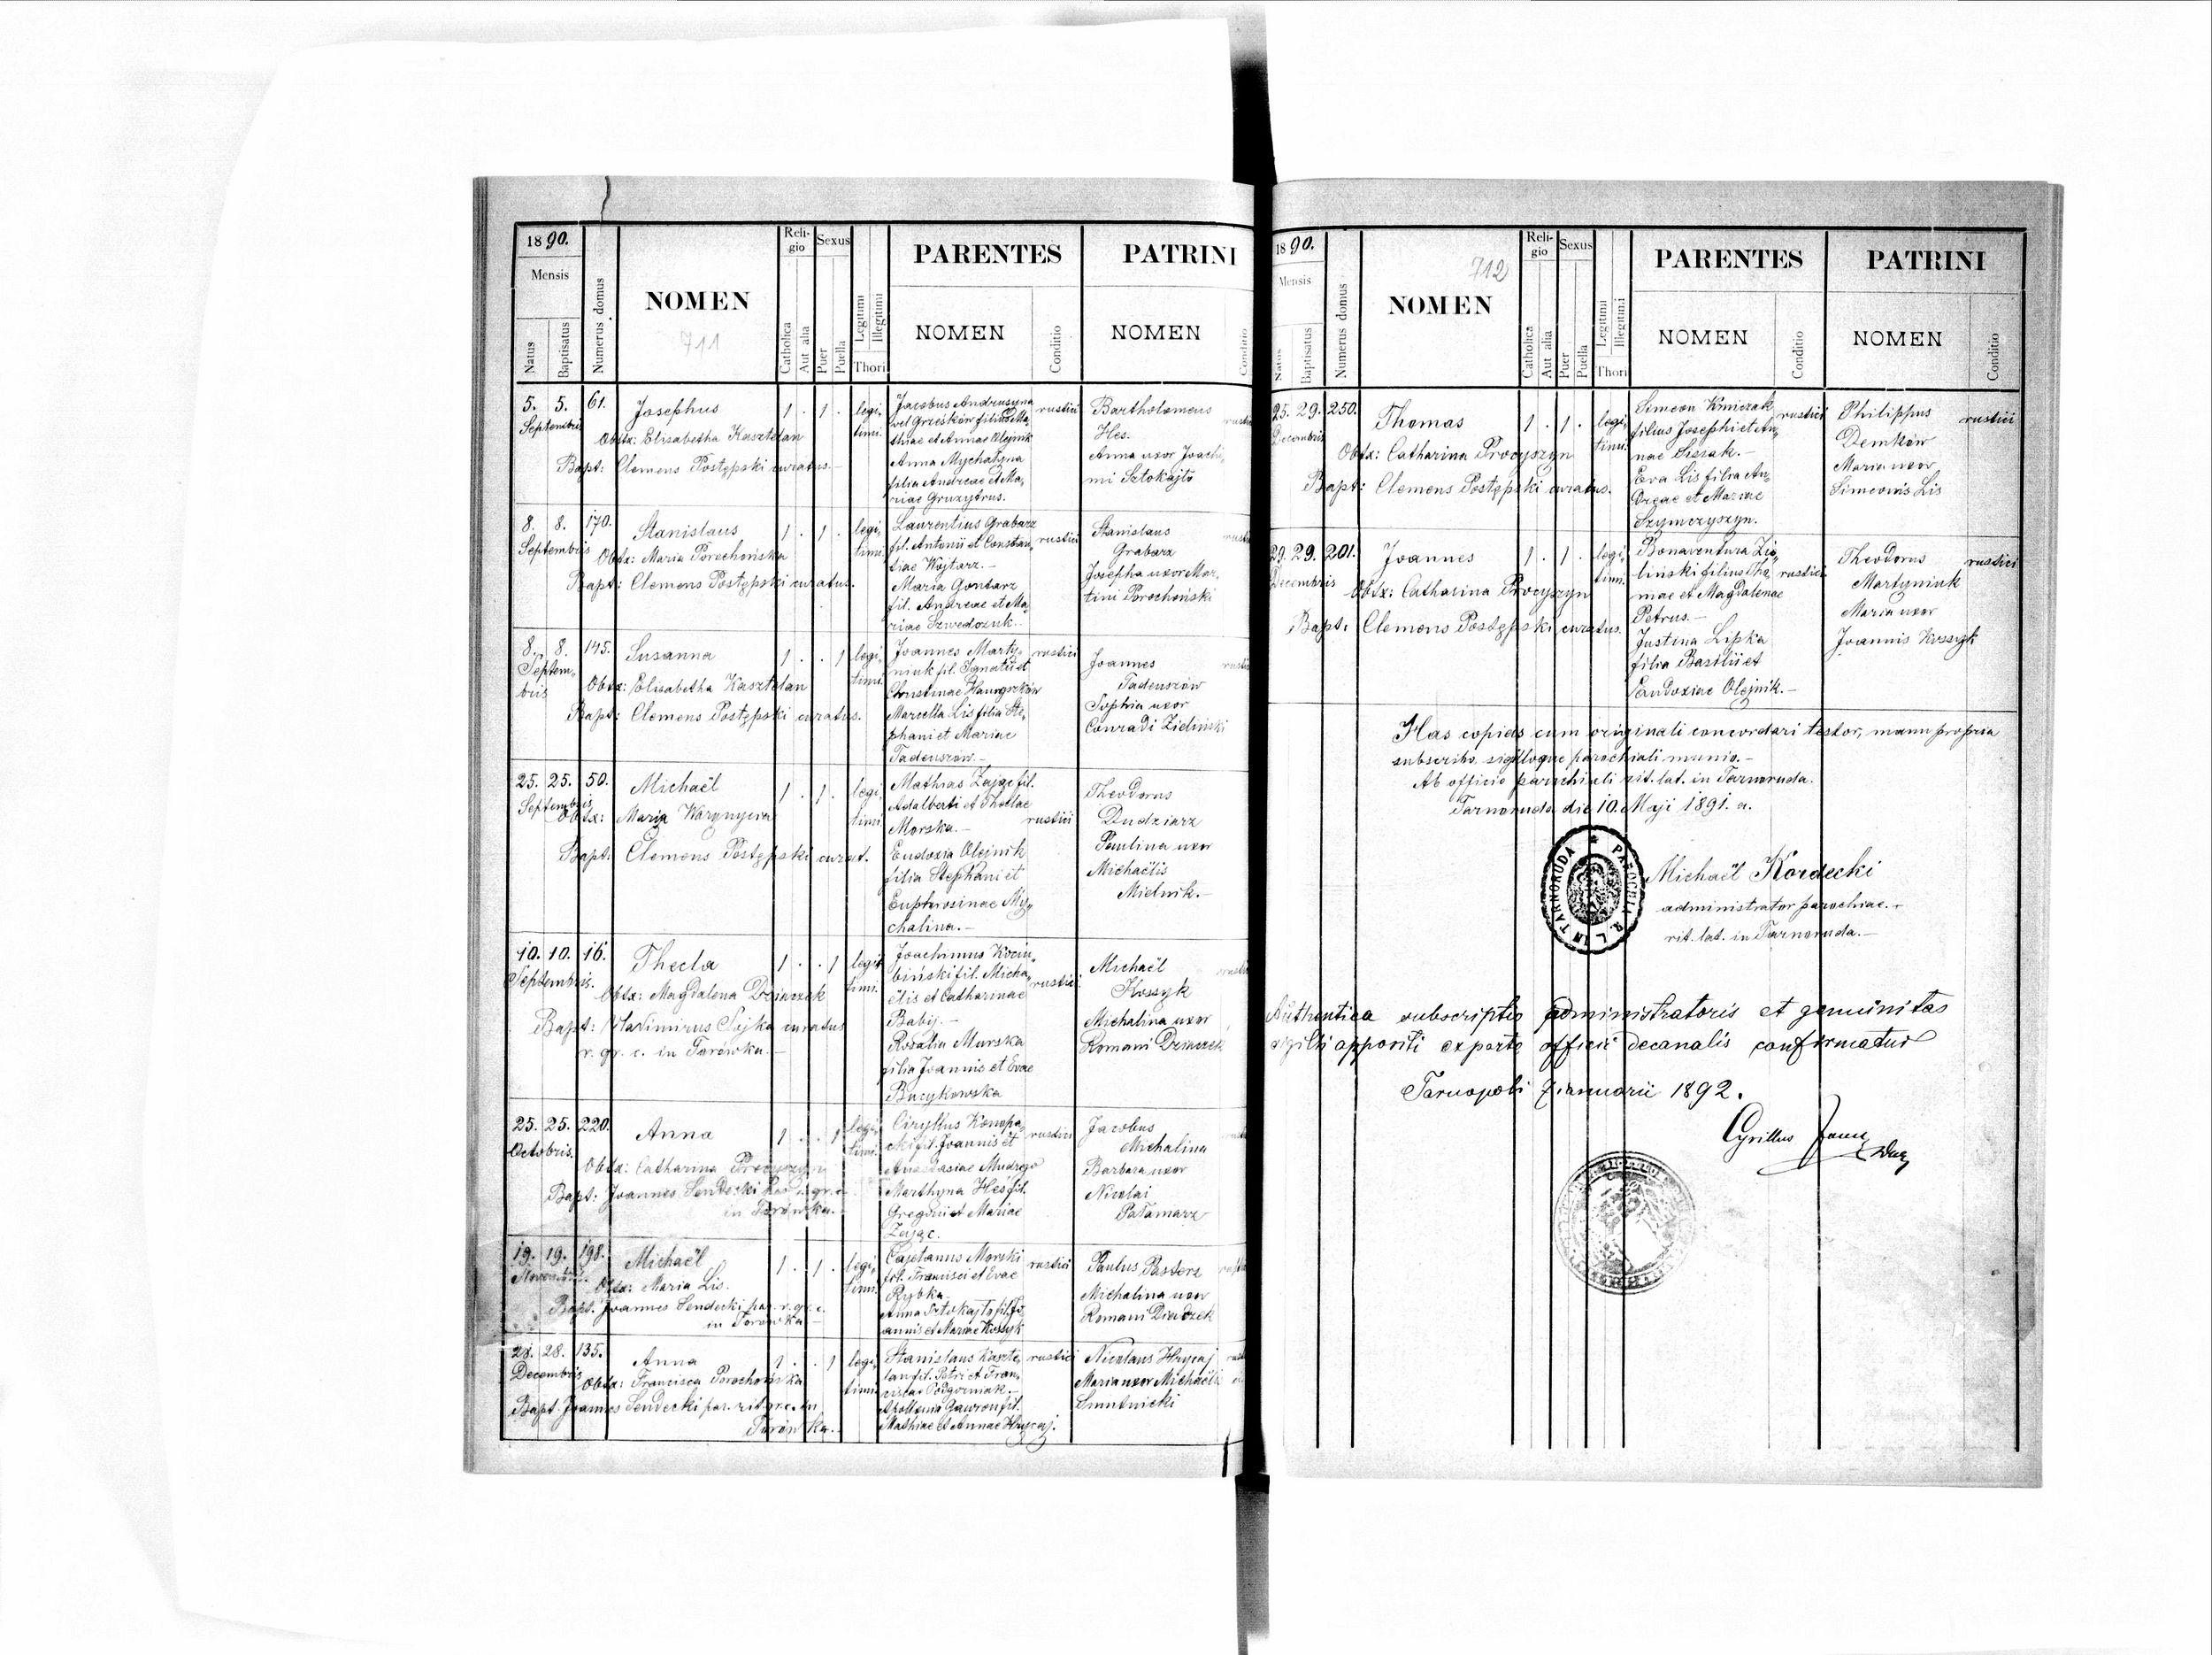 1890.
Mensis
Natus
Baptisatus
Numerus domus
NOMEN
711
Religio
Catholica
Aut alia
Sexus
Puer
Puella
Legitimi
Illegitimi
Thori
PARENTES
NOMEN
Conditio
PATRINI
NOMEN
Conditio
5. 5. 61. Josephus 1 . 1 . legi,
Septembris
timi.
Obstx: Elisabetha Kasztelan
Bapt: Clemens Postępski curatus.-
Jacobus Andrusyna
vel Grześków filius Ma,
thiae et Annae Olejnik
Anna Mychalyna
filia Andreae et Ma,
riae Gruzytrus.
rustici
Bartholomeus
Hes.
Anna uxor Joachi,
mi Sztokajło
8. 8. 170. Stanislaus 1 . 1 . legi,
Septembris
timi.
Obstx: Maria Porochońska
Bapt: Clemens Postępski curatus.
Laurentius Grabarz
fil. Antonii et Constan,
tiae Wojtarz.-
Maria Gontarz
fil. Andreae et Ma,
riae Szwedozuk.-
rustici
Stanislaus
Grabarz
Josepha uxor Mar,
tini Porochoński
8. 8. 145. Susanna 1 . . 1 legi,
Septem,
bris
timi.
Obstx: Elisabetha Kasztelan
Bapt: Clemens Postępski curatus.
Joannes Marty,
niuk fil. Ignatii et
Christinae
Marcella Lis filia Ste,
phani et Mariae
Tadeuszów.-
rustici
Joannes
Tadeuszów
Sophia uxor
Conradi Zieliński
25. 25. 50. Michaël 1 . 1 . legi,
Septembris
timi.
Obstx: Maria
Bapt: Clemens Postępski curat.
Mathias Zając fil.
Adalberti et Theclae
Morska.-
Eudoxia Olejnik
filia Stephani et
Euphrosinae My,
chalina.-
rustici
Theodorus
Dudziarz
Paulina uxor
Michaëlis
Mielnik.-
10. 10. 16. Thecla 1 . . 1 legi,
Septembris.
timi.
Obstx: Magdalena
Bapt: Vladimirus Sojka curatus
r. gr. c. in Torówka.-
Joachimus Kociu,
biński fil. Micha,
ëlis et Catharinae
Babij.-
Rosalia Murska
filia Joannis et Evae
Bucykowska
rustici
Michaël
Kossyk
Michalina uxor
Romani
25. 25. 220. Anna 1 . . 1 legi,
Octobris.
timi.
Obstx: Catharina Procyszyn
Bapt: Joannes Sendecki par. r. gr. c.
in Torówka.-
Ciryllus Konopa,
cki fil. Joannis et
Anastasiae Mudrego
Marthyna Hes fil.
Gregorii et Mariae
Zając.
rustici
Jacobus
Michalina
Barbara uxor
Nicolai
Pałamarz
19. 19. 198. Michaël 1 . 1 . legi,
timi.
Obstx: Maria Lis.
Bapt. Joannes Sendecki par. r. gr. c.
in Torówka.-
Cajetanus Morski
fil. Francisci et Evae
Rybka.
Anna Sztokajło fil. Jo,
annis et Mariae Kossyk
rustici
Paulus Pasterz
Michalina uxor
Romani
28. 28. 135. Anna 1 . . 1 legi,
Decembris
timi.
Obstx: Francisca Porochońska
Bapt. Joannes Sendecki par. rit. gr. c. in
Torówka.-
Stanislaus Kaszte,
lan fil. Petri et Fran,
ciscae Podgorniak.-
Apollonia Gawron fil.
Mathiae et Annae Hrycaj.
rustici
Nicolaus Hrycaj
Maria uxor Michaëlis
Smutnicki
1890.
Mensis
Natus
Baptisatus
Numerus domus
712
NOMEN
Religio
Catholica
Aut alia
Sexus
Puer
Puella
Legitimi
Illegitimi
Thori
PARENTES
NOMEN
Conditio
PATRINI
NOMEN
Conditio
25. 29. 250. Thomas 1 . 1 . legi,
Decembris
timi.
Obstx: Catharina Procyszyn
Bapt: Clemens Postępski curatus.
Simeon Kmiczak
filius Josephi et An,
nae
Eva Lis filia An,
dreae et Mariae
Szymczyszyn.
rustici
Philippus
Demków
Maria uxor
Simeonis Lis
rustici
29. 29. 201. Joannes 1 . 1 . legi,
Decembris
timi.
Obstx: Catharina Procyszyn
Bapt: Clemens Postępski curatus.
Bonaventura Zie,
liński filius Tho,
mae et Magdalenae
Petrus.-
Justina Lipka
filia Basilii et
Eudoxiae Olejnik.-
rustici
Theodorus
Martyniuk
Maria uxor
Joannis Kossyk
rustici
Has copias cum originali concordari testor, manu propria
subscribo, sigilloque parochiali munio.-
Ab officio parochiali rit. lat. in Tarnoruda.
Tarnoruda die 10. Maji 1891. a.
PAROCHIA R. L. IN TARNORUDA
Michaël Kordecki
administrator parochiae.-
rit. lat. in Tarnoruda.-
Authentica subscriptio administratoris et genuinitas
sigilli appositi ex parte officii decanalis confirmatur
Tarnopoli 7 januarii 1892.
Cyrillus